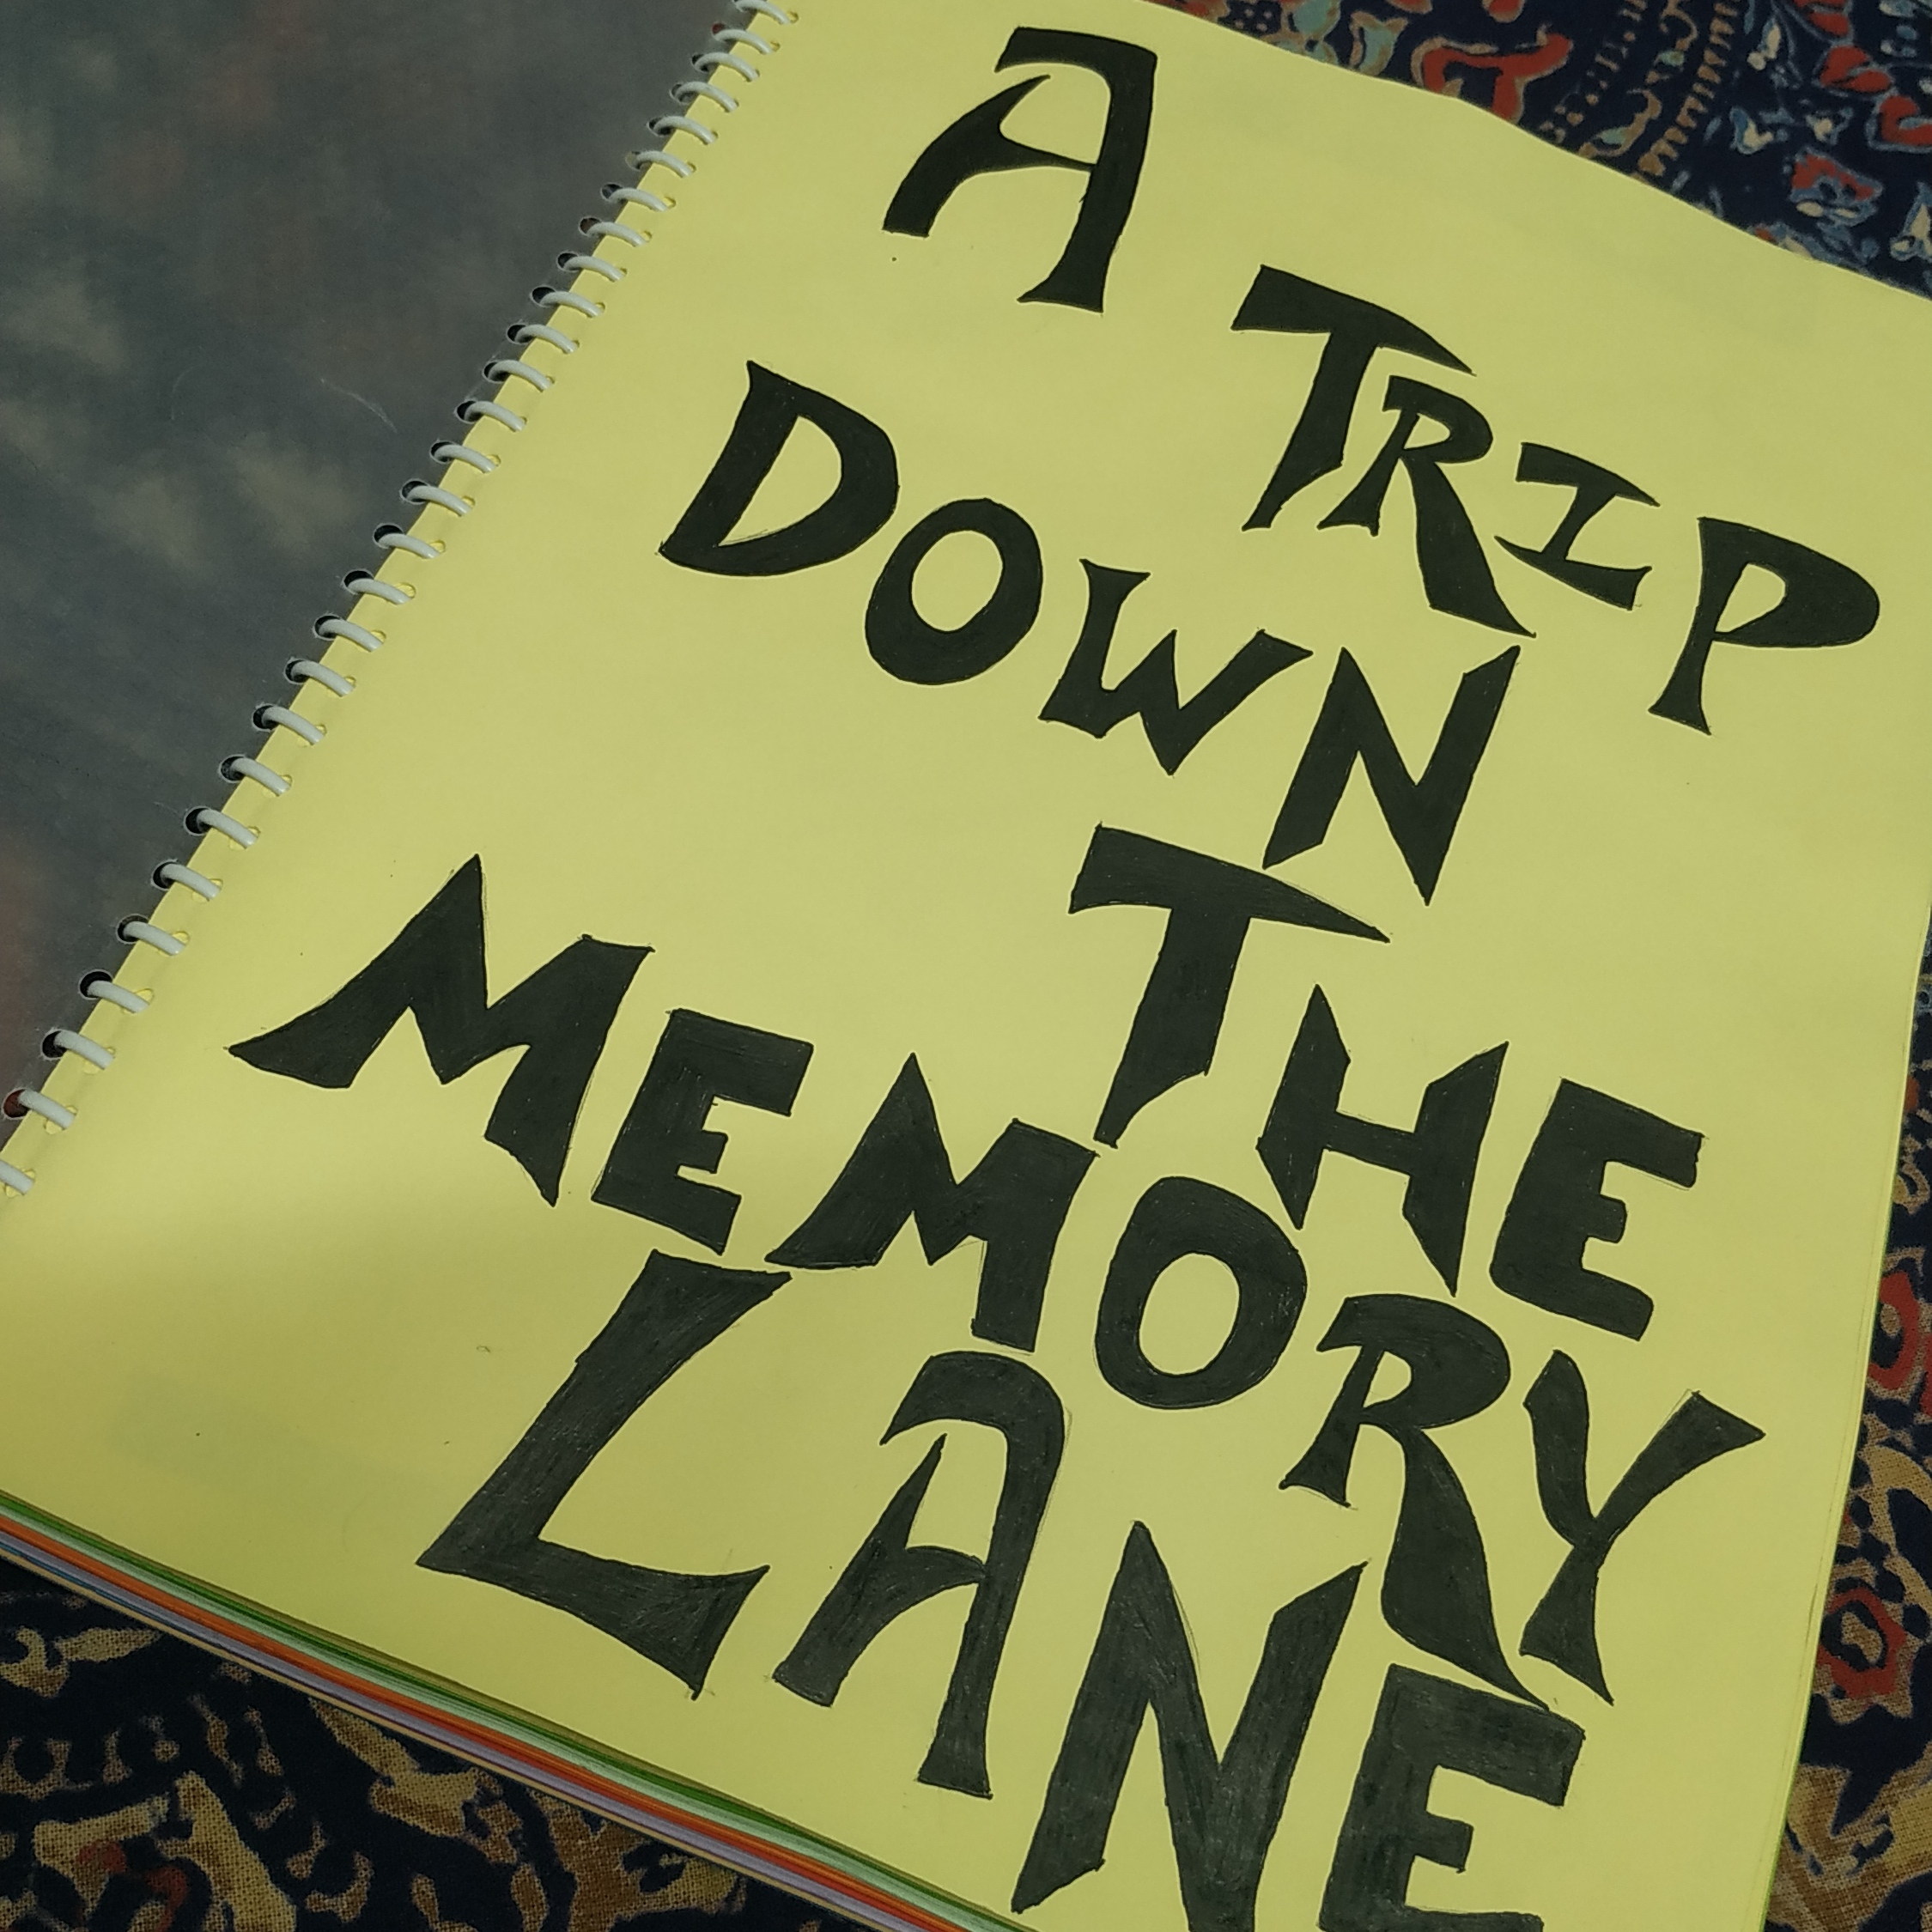 A
TRIP
DOWN
THE
MEMORY
LANE